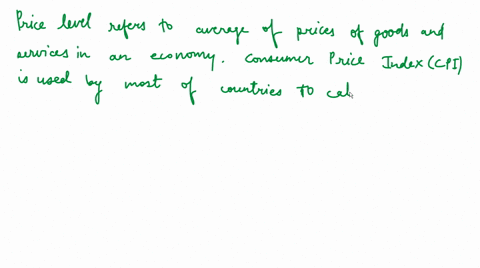 Price level refers to average of prices of goods and
services in an economy. Consumer Price Index (CPI)
is used by most of countries to cal